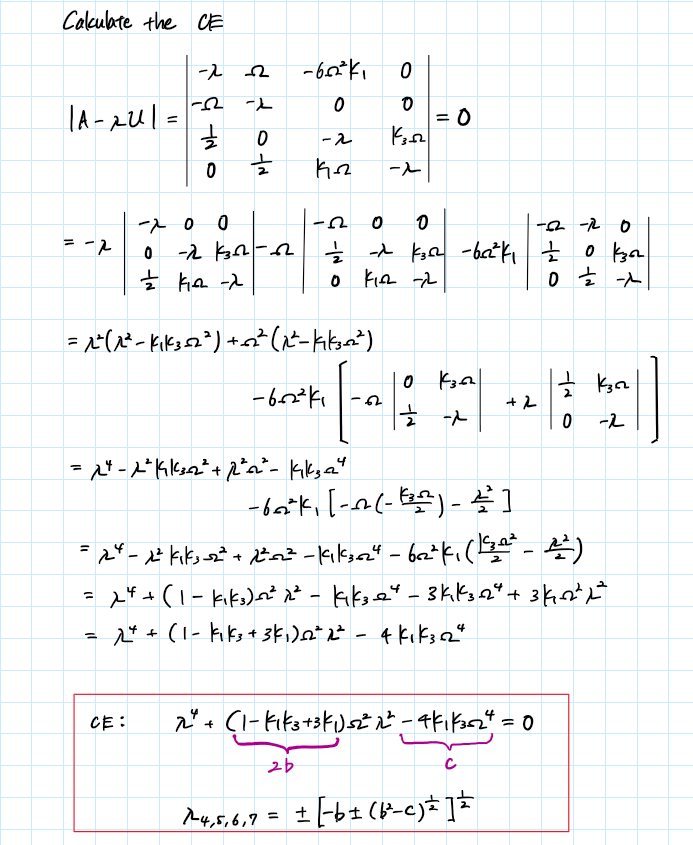 Calculate the CE
|A - λU| = | -λ Ω -6Ω²K₁ 0 |
| -Ω -λ 0 0 |
| 1/2 0 -λ K₃Ω |
| 0 1/2 K₁Ω -λ | = 0
= -λ | -λ 0 0 | - Ω | -Ω 0 0 | -6Ω²K₁ | -Ω -λ 0 |
| 0 -λ K₃Ω | | 1/2 -λ K₃Ω | | 1/2 0 K₃Ω |
| 1/2 K₁Ω -λ | | 0 K₁Ω -λ | | 0 1/2 -λ |
= λ²(λ² - K₁K₃Ω²) + Ω²(λ² - K₁K₃Ω²)
-6Ω²K₁ [ -Ω | 0 K₃Ω | + λ | 1/2 K₃Ω | ]
| 1/2 -λ | | 0 -λ |
= λ⁴ - λ²K₁K₃Ω² + λ²Ω² - K₁K₃Ω⁴
-6Ω²K₁ [ -Ω(-K₃Ω/2) - λ²/2 ]
= λ⁴ - λ²K₁K₃Ω² + λ²Ω² - K₁K₃Ω⁴ - 6Ω²K₁(K₃Ω²/2 - λ²/2)
= λ⁴ + (1 - K₁K₃)Ω²λ² - K₁K₃Ω⁴ - 3K₁K₃Ω⁴ + 3K₁Ω²λ²
= λ⁴ + (1 - K₁K₃ + 3K₁)Ω²λ² - 4K₁K₃Ω⁴
CE: λ⁴ + (1-K₁K₃+3K₁)Ω²λ² - 4K₁K₃Ω⁴ = 0
2b c
λ₄,₅,₆,₇ = ± [-b ± (b²-c)^1/2]^1/2